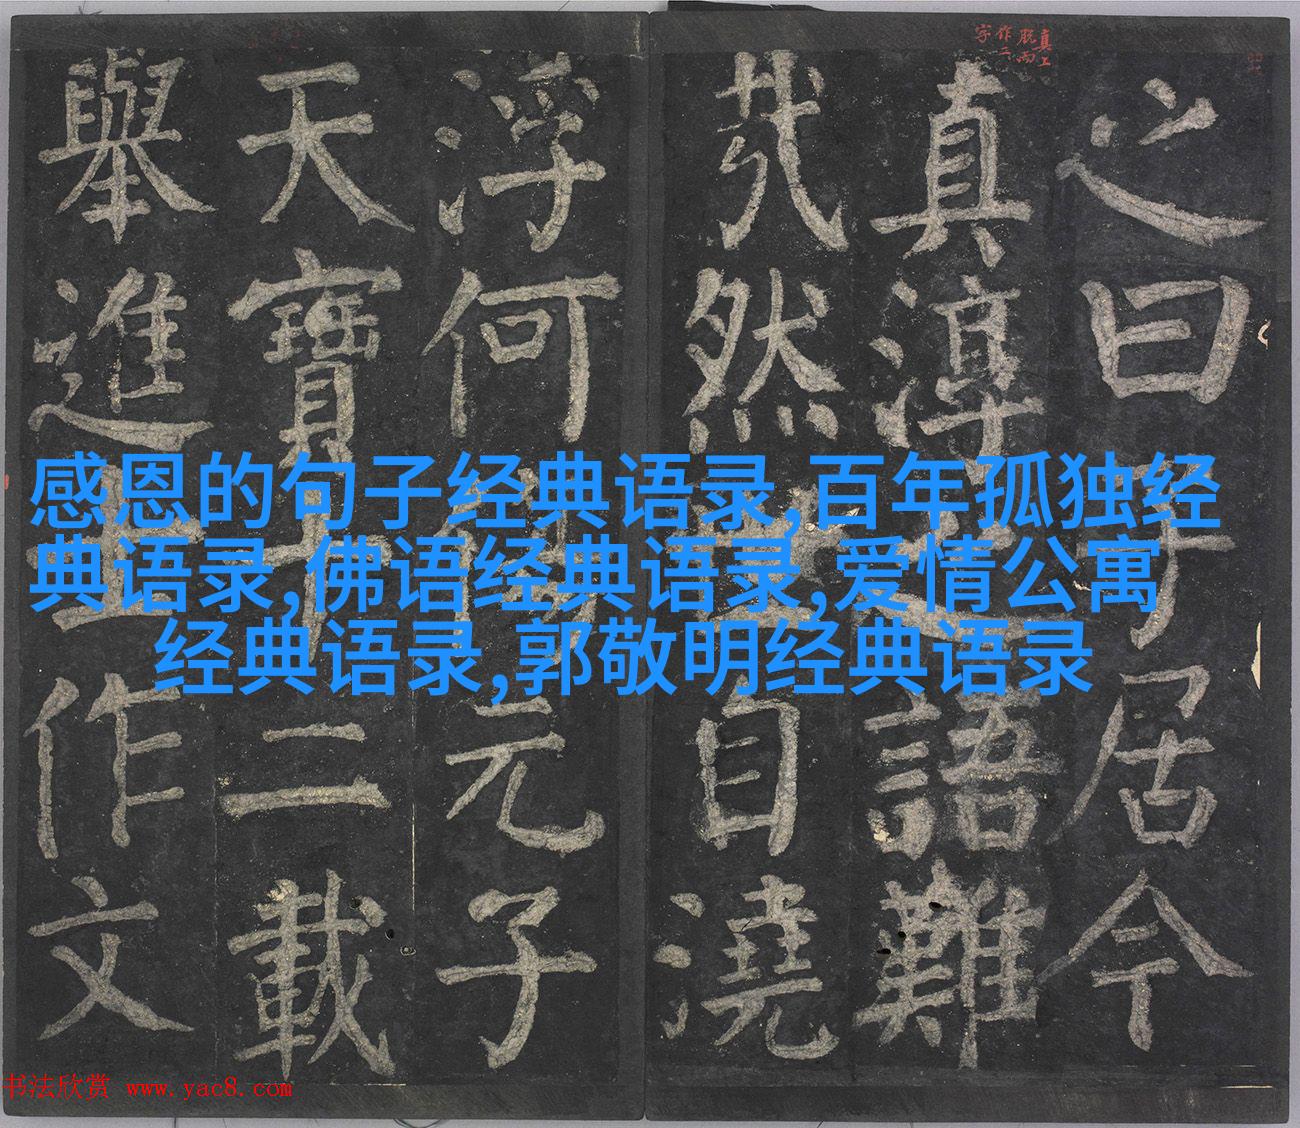 真上
脫而
作二
字
之曰子居今
真淳之語難
哉然世自澆
浮何傷元子
天寶十二載
舉進士作文
感恩的句子经典语录,百年孤独经
典语录,佛语经典语录,爱情公寓
经典语录,郭敬明经典语录
书法欣赏 www.yac8.com